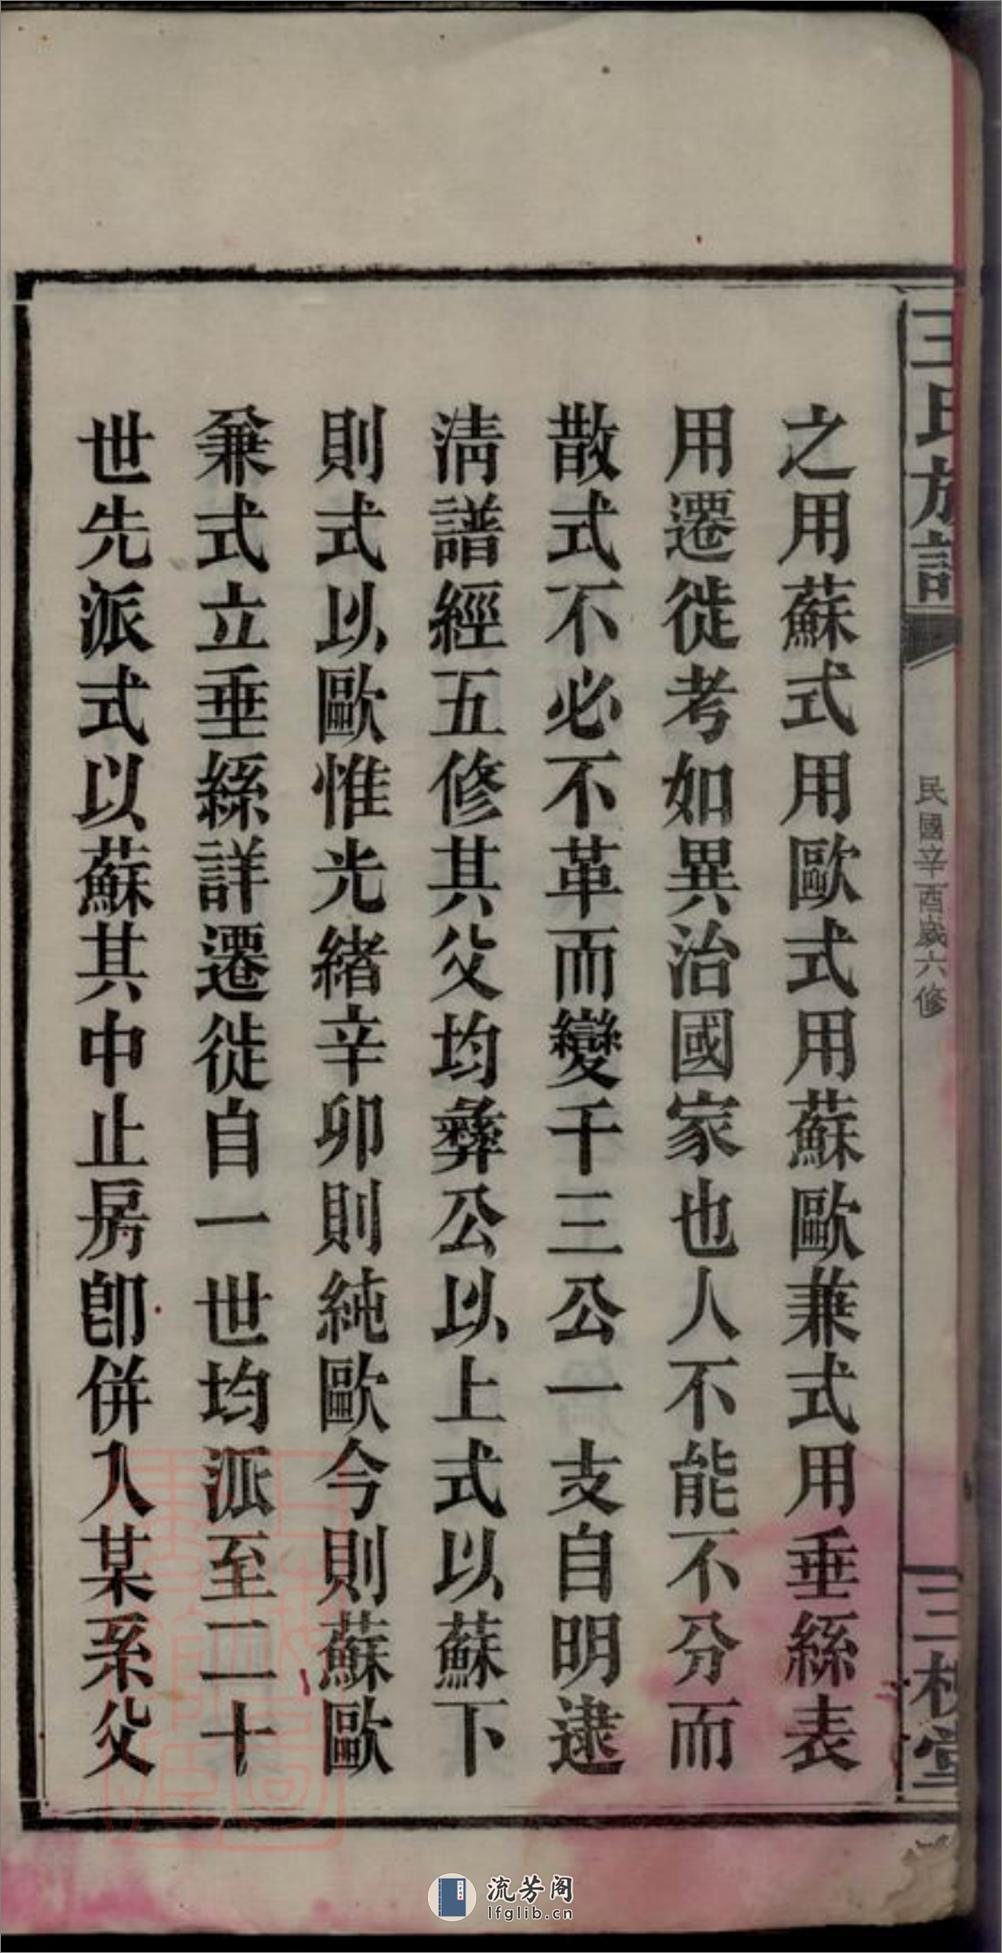 王氏族譜
民國辛酉歲六修
三槐堂
之用蘇式用歐式用蘇歐兼式用垂絲表
用遷徙考如異治國家也人不能不分而
散式不必不革而變千三公一支自明逮
淸譜經五修其父均彝公以上式以蘇下
則式以歐惟光緒辛卯則純歐今則蘇歐
兼式立垂絲詳遷徙自一世均派至二十
世先派式以蘇其中止房卽併入某系父
流芳阁
lfglib.cn